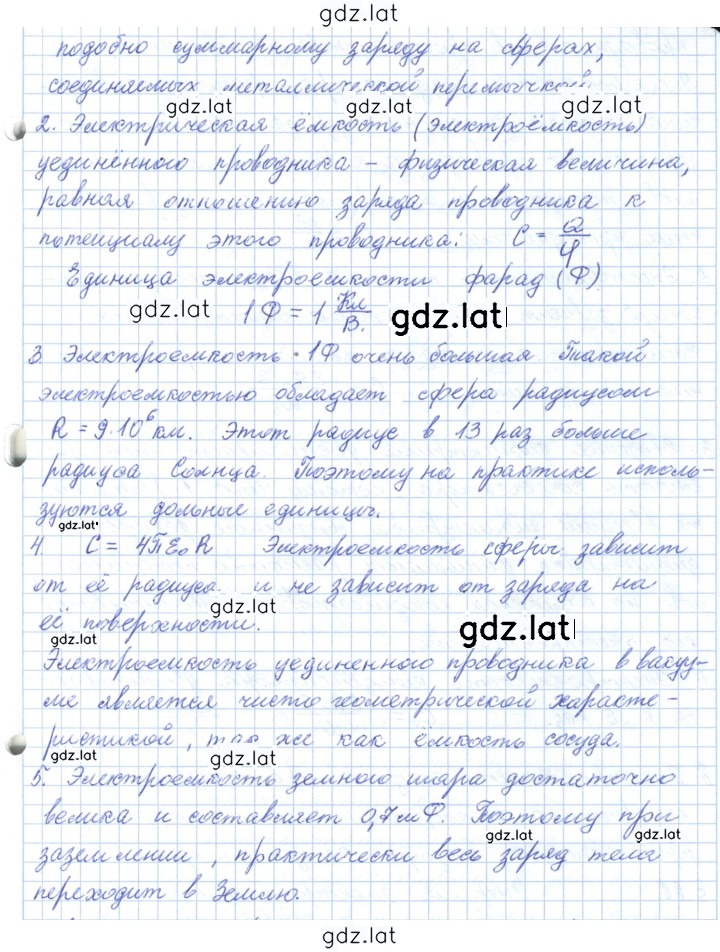 gdz.lat
подобно суммарному заряду на сферах,
соединяемых металлической перемычкой
gdz.lat gdz.lat gdz.lat
2. Электрическая ёмкость (электроёмкость)
уединённого проводника – физическая величина,
равная отношению заряда проводника к
потенциалу этого проводника: C = Q/φ
Единица электроемкости фарад (Ф)
gdz.lat 1 Ф = 1 Кл/В. gdz.lat
3 Электроемкость 1Ф очень большая Такой
электроемкостью обладает сфера радиусом
R = 9·10⁶ км. Этот радиус в 13 раз больше
радиуса Солнца. Поэтому на практике исполь-
зуются дольные единицы.
gdz.lat
4. C = 4πε₀R Электроемкость сферы зависит
от её радиуса и не зависит от заряда на
gdz.lat
её поверхности. gdz.lat
gdz.lat
Электроемкость уединенного проводника в вакуу-
ме является чисто геометрической характе-
ристикой, так же как ёмкость сосуда.
gdz.lat gdz.lat
5. Электроемкость земного шара достаточно
велика и составляет 0,7 мФ. Поэтому при
gdz.lat gdz.lat
заземлении, практически весь заряд тела
переходит в Землю.
gdz.lat